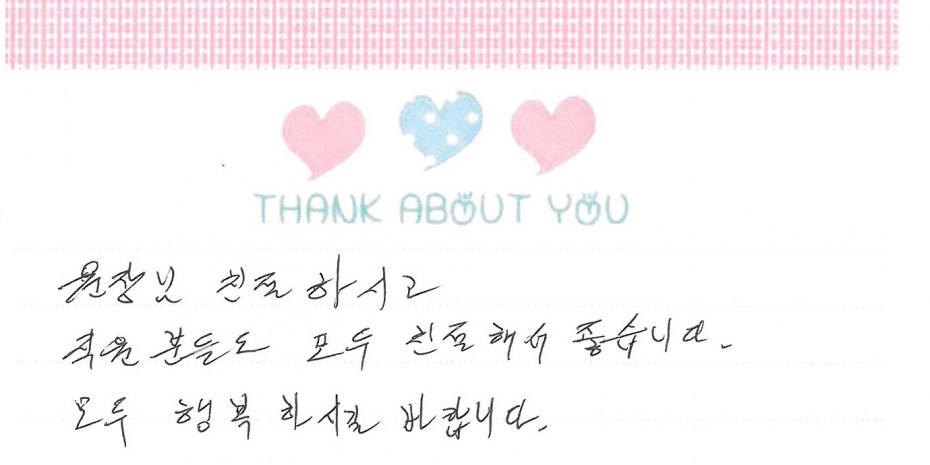 THANK ABOUT YOU
원장님 친절하시고
직원분들도 모두 친절해서 좋습니다.
모두 행복하시길 바랍니다.